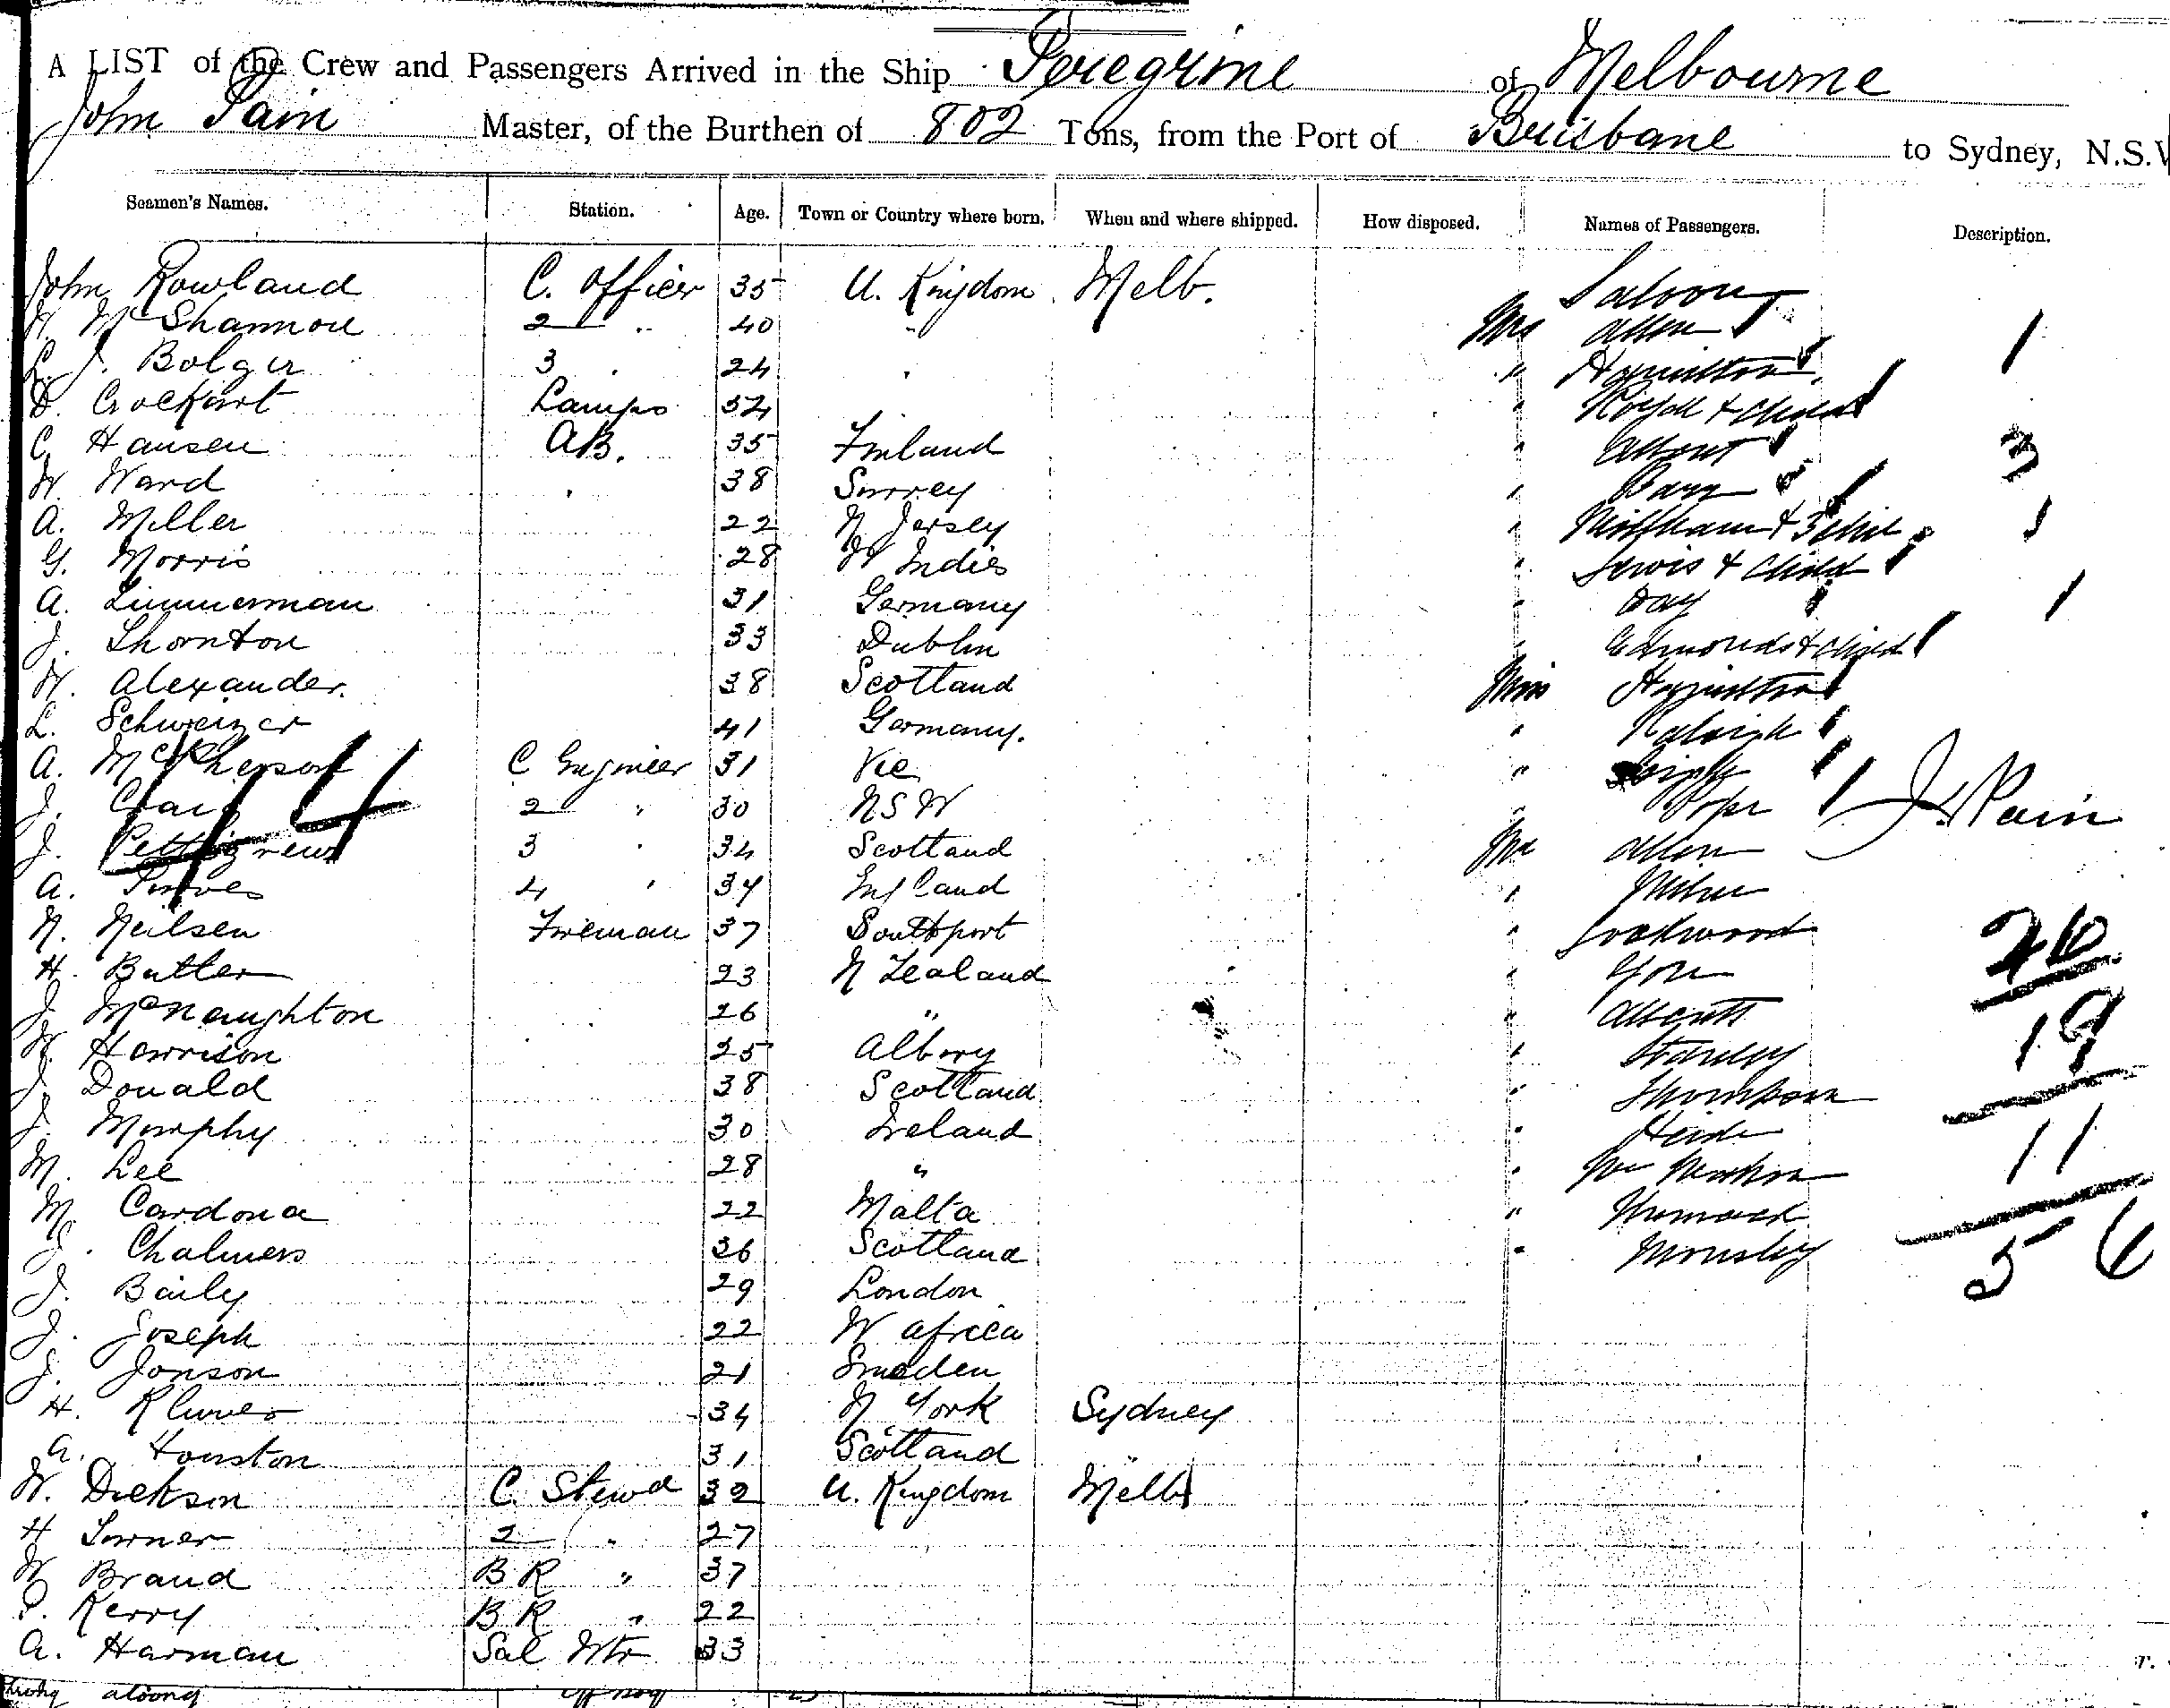 A LIST of the Crew and Passengers Arrived in the Ship Peregrine of Melbourne
John Pain Master, of the Burthen of 802 Tons, from the Port of Brisbane to Sydney, N.S.
Seamen's Names. Station. Age. Town or Country where born. When and where shipped. How disposed. Names of Passengers. Description.
John Rowland C. Officer 35 U. Kingdom Melb. Saloon
McShannon 2 " 40 " Mrs Allen 1
J. Bolger 3 " 24 " " Hamilton
D. Crockart Lamps & child
C. Hansen A.B. 35 Finland " 3
W. Ward " 38 Surrey "
A. Miller 22 N Jersey " &
G. Morris 28 W Indies " Lewis & child
A. Zimmerman 31 Germany " Day 1
J. Thornton 33 Dublin " Edmonds & child
W. Alexander. 38 Scotland Miss Hamilton
L. Schweizer 41 Germany. " Raleigh
A. McPherson C Engineer 31 Vic "
J. Craig 2 " 30 NSW " Pope J. Pain
J. Pettigrew 3 " 34 Scotland Mr Allen
A. Purves 4 " England " Milne
N. Neilsen Fireman 37 Southport " Lockwood
H. Butler 23 N Zealand "
J. McNaughton 26 " "
W. Harrison 25 Albury " Stanley 19
J. Donald 38 Scotland " Thompson
J. Murphy 30 Ireland " 11
M. Lee 28 " "
M. Cardona 22 Malta "
J. Chalmers 36 Scotland " 56
J. Baily 29 London
J. Joseph 22 W Africa
J. Jonson 21 Sweden
H. 34 N. York Sydney
A. Houston 31 Scotland
W. Dickson C. Stewd 32 U. Kingdom Melb
H Turner 2 " 27
W Brand B R " 37
P. Kerry B R " 22
A. Harman Sal Wtr 33